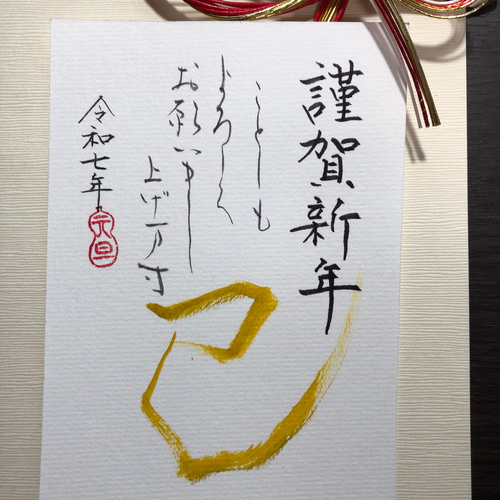 謹賀新年
ことしも
よろしく
お願いまし
上げ万寸
令和七年
元旦
巳